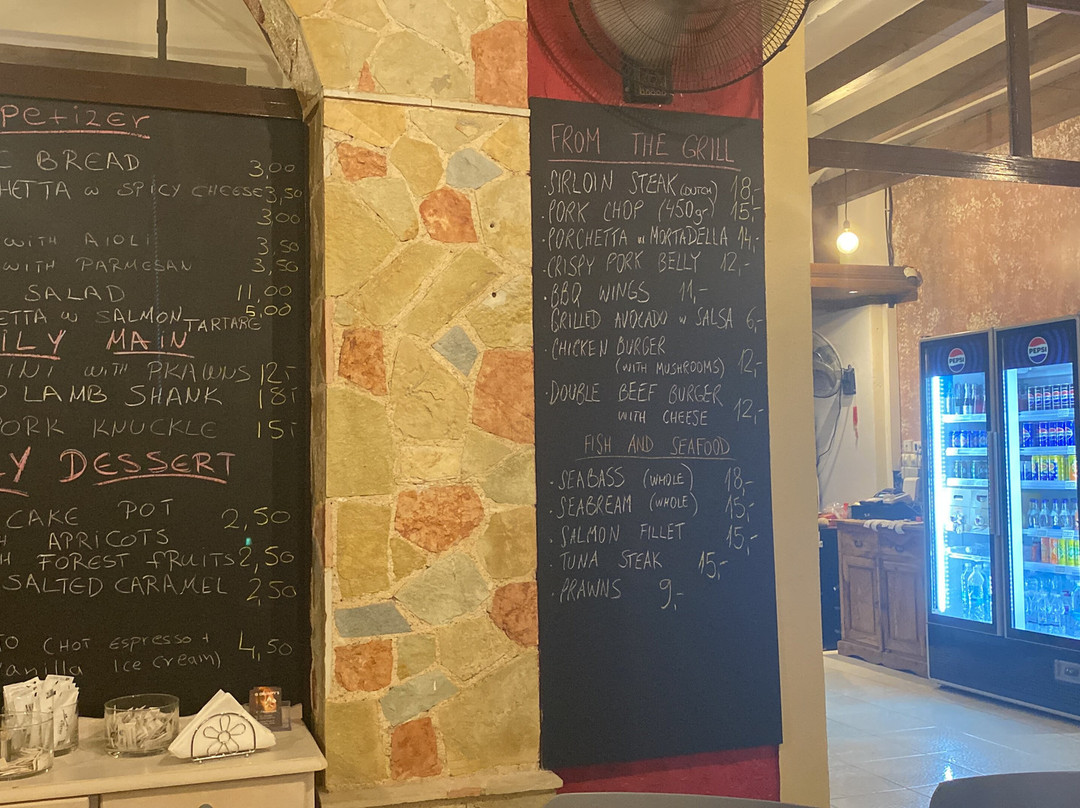 Petizer
BREAD 3,00
HETTA w SPICY CHEESE 3,50
3,00
WITH AIOLI 3,50
WITH PARMESAN 3,50
SALAD 11,00
ETTA w SALMON TARTARE 5,00
ILY MAIN
INI WITH PRAWNS 12,-
LAMB SHANK 18,-
PORK KNUCKLE 15,-
Y DESSERT
CAKE POT 2,50
H APRICOTS
H FOREST FRUITS 2,50
SALTED CARAMEL 2,50
TO (HOT Espresso + 4,50
Vanilla Ice Cream)
FROM THE GRILL
·SIRLOIN STEAK (DUTCH) 18,-
·PORK CHOP (450gr) 15,-
·PORCHETTA w MORTADELLA 14,-
·CRISPY PORK BELLY 12,-
·BBQ WINGS 11,-
GRILLED AVOCADO w SALSA 6,-
·CHICKEN BURGER
(WITH MUSHROOMS) 12,-
·DOUBLE BEEF BURGER
WITH CHEESE 12,-
FISH AND SEAFOOD
·SEABASS (WHOLE) 18,-
·SEABREAM (WHOLE) 15,-
·SALMON FILLET 15,-
·TUNA STEAK 15,-
·PRAWNS 9,-
PEPSI
PEPSI